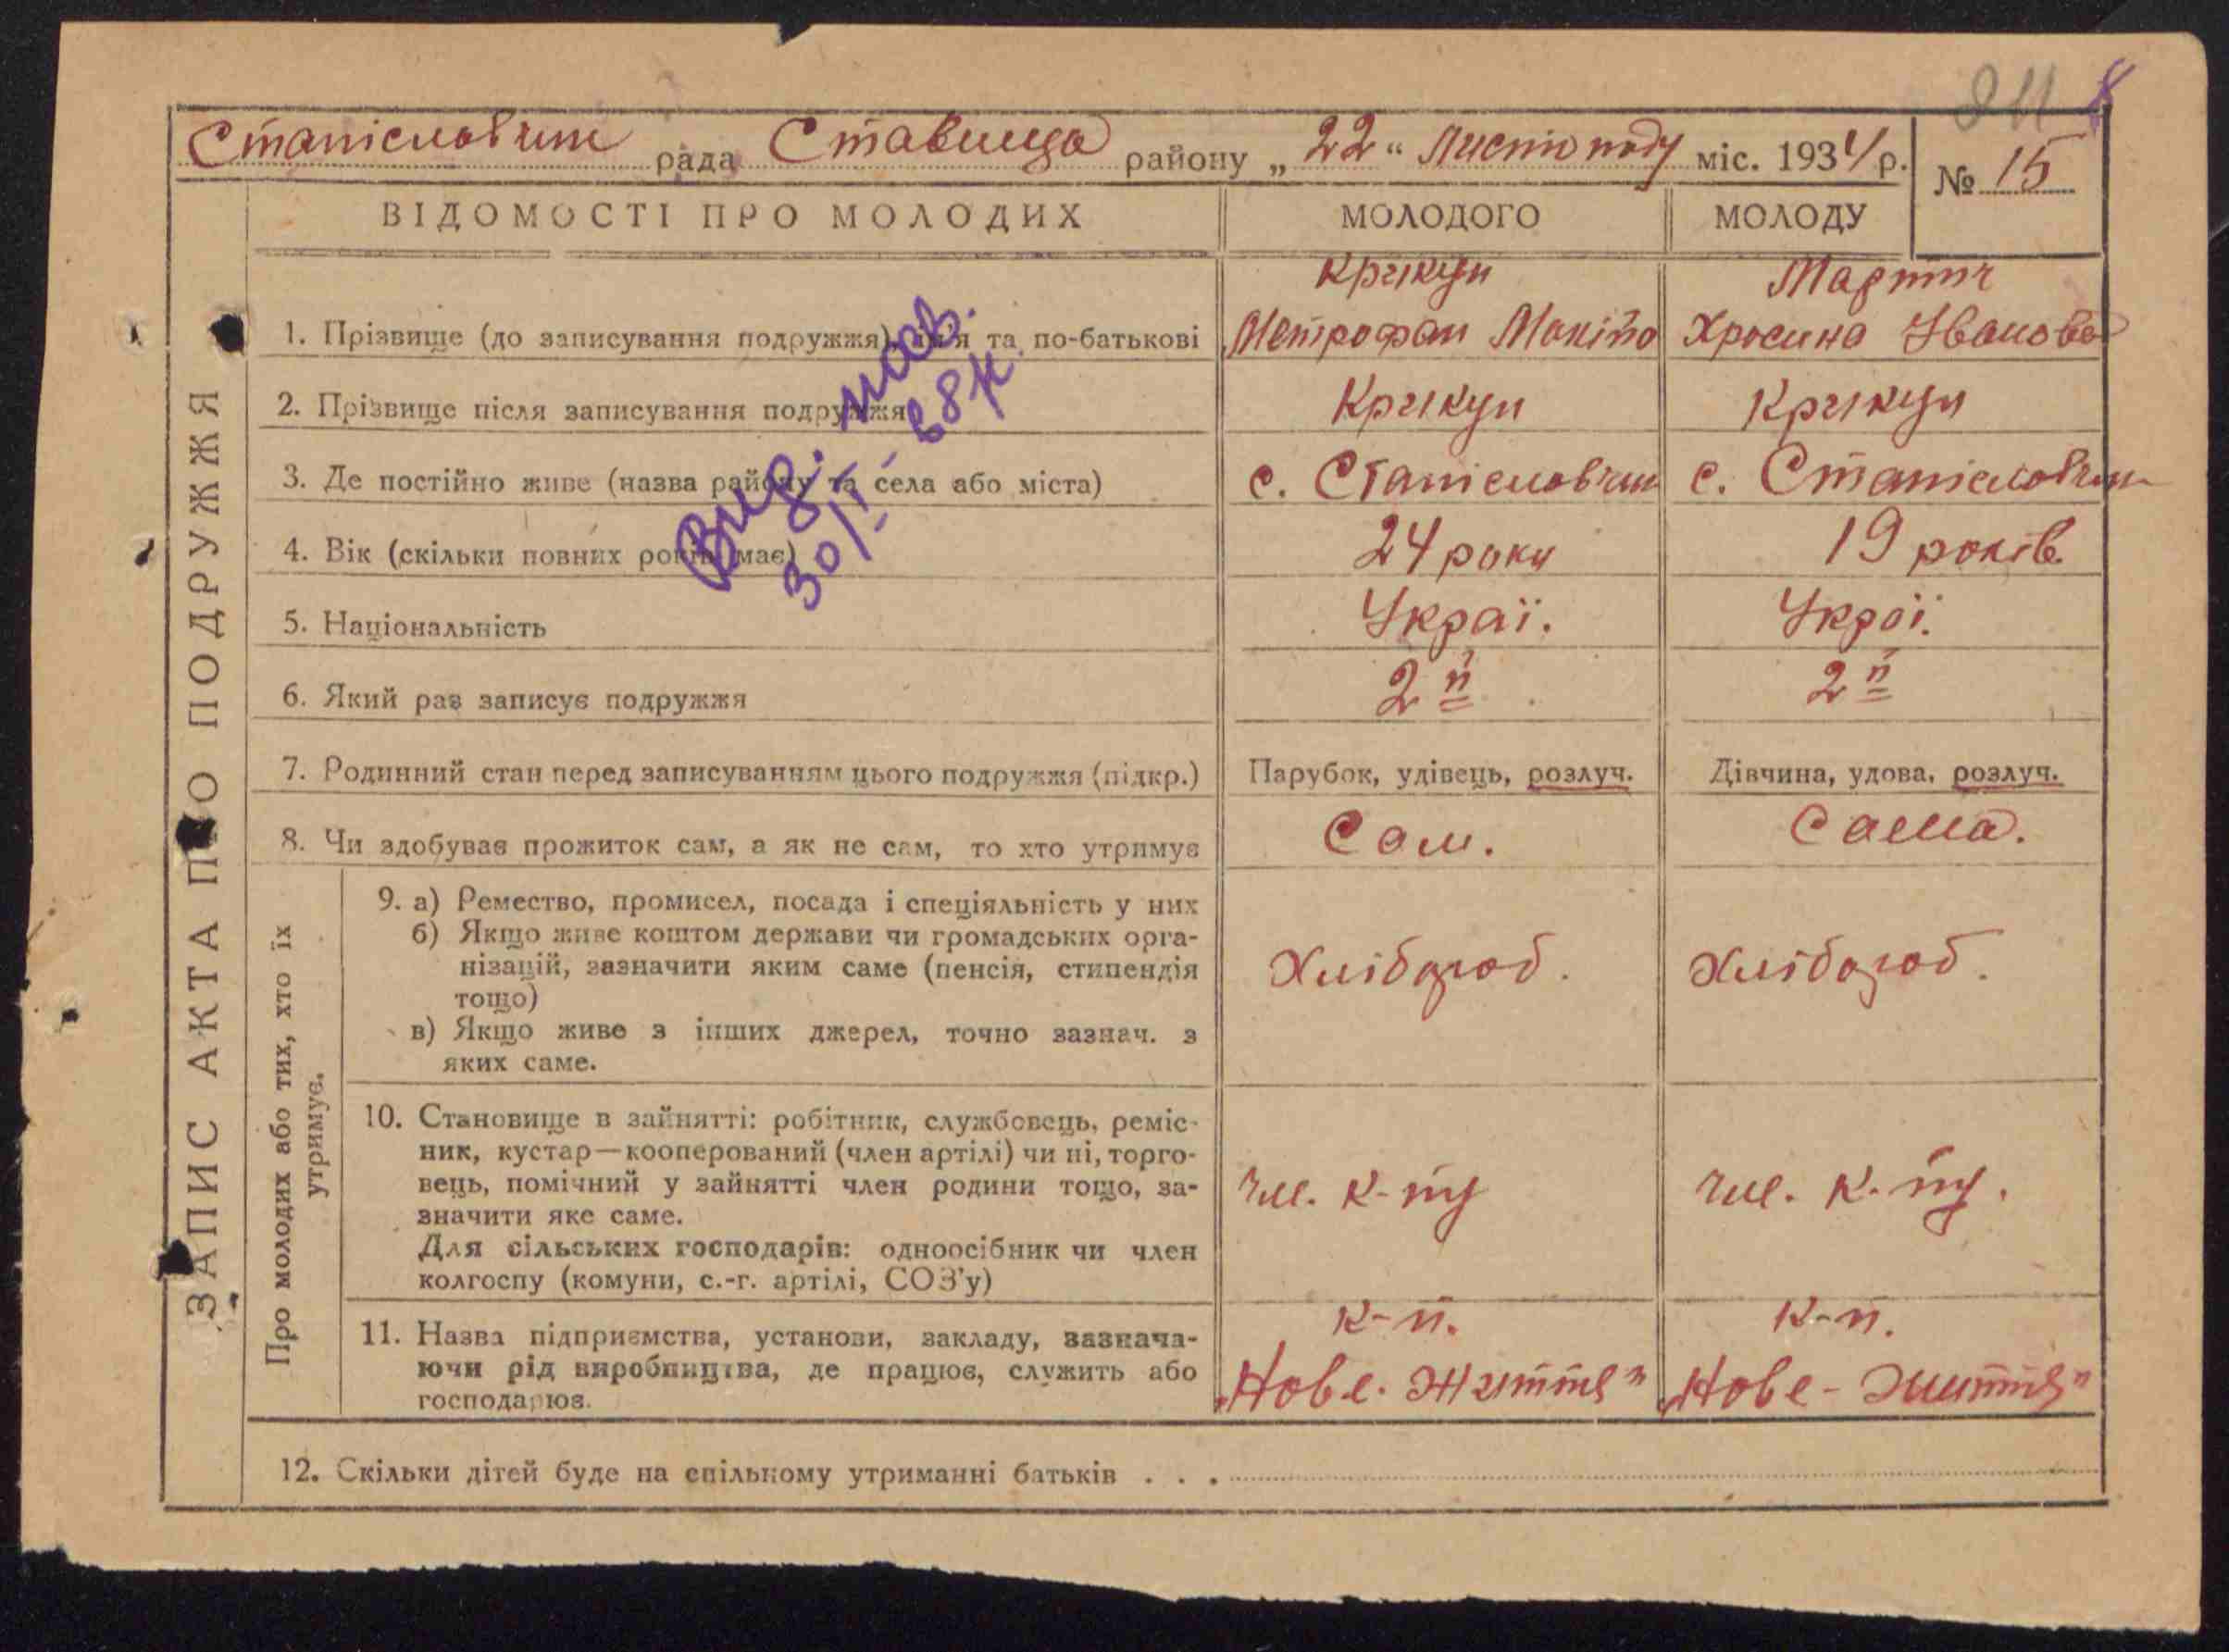 811
Станіславчик рада Ставище району „22“ Листопаду міс. 1934 р. № 15
ЗАПИС АКТА ПРО ПОДРУЖЖЯ
ВІДОМОСТІ ПРО МОЛОДИХ МОЛОДОГО МОЛОДУ
Крикун Мартич
1. Прізвище (до записування подружжя), ім'я та по-батькові Метрофан Микіто Хросина Іванова
2. Прізвище після записування подружжя Крикун Крикун
3. Де постійно живе (назва району та села або міста) с. Станіславчик с. Станіславчик
4. Вік (скільки повних років має) 24 роки 19 років
5. Національність Украї. Украї.
6. Який раз записує подружжя 2й 2й
7. Родинний стан перед записуванням цього подружжя (підкр.) Парубок, удівець, розлуч. Дівчина, удова, розлуч.
8. Чи здобуває прожиток сам, а як не сам, то хто утримує Сам. Сама.
Про молодих або тих, хто їх
утримує.
9. а) Ремество, промисел, посада і спеціяльність у них
б) Якщо живе коштом держави чи громадських орга-
нізацій, зазначити яким саме (пенсія, стипендія Хлібороб. Хлібороб.
тощо)
в) Якщо живе з інших джерел, точно зазнач. з
яких саме.
10. Становище в зайнятті: робітник, службовець, реміс-
ник, кустар—кооперований (член артілі) чи ні, торго-
вець, помічний у зайнятті член родини тощо, за- чл. к-ту чл. к-ту.
значити яке саме.
Для сільських господарів: одноосібник чи член
колгоспу (комуни, с.-г. артілі, СОЗ'у)
к-т. к-т.
11. Назва підприємства, установи, закладу, зазнача-
ючи рід виробництва, де працює, служить або „Нове-Життя" „Нове-Життя"
господарює.
12. Скільки дітей буде на спільному утриманні батьків . . .
Вид.
30/I-